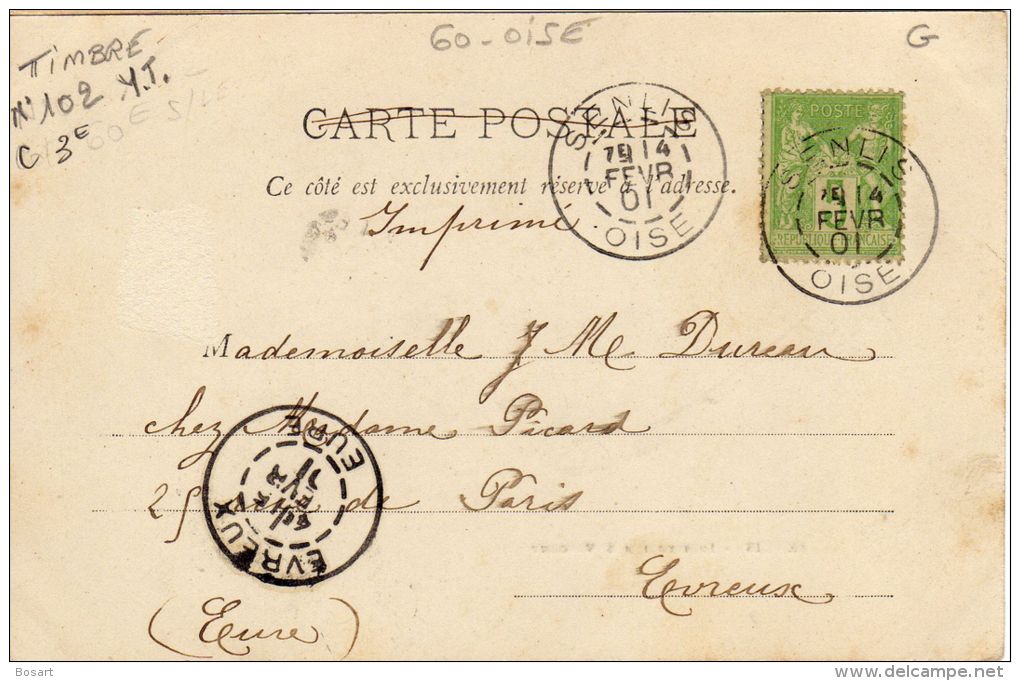 60-OISE
G
TIMBRE
N°102 Y.T.
C 3E
CARTE POSTALE
Ce côté est exclusivement réservé à l'adresse.
Imprimé
SENLIS
14
FEVR
01
OISE
POSTE
REPUBLIQUE FRANCAISE
SENLIS
14
FEVR
01
OISE
Mademoiselle J Me Dureau
chez Madame Picard
25 rue de Paris
Evreux
(Eure)
EVREUX
EURE
Bosart
delcampe.net